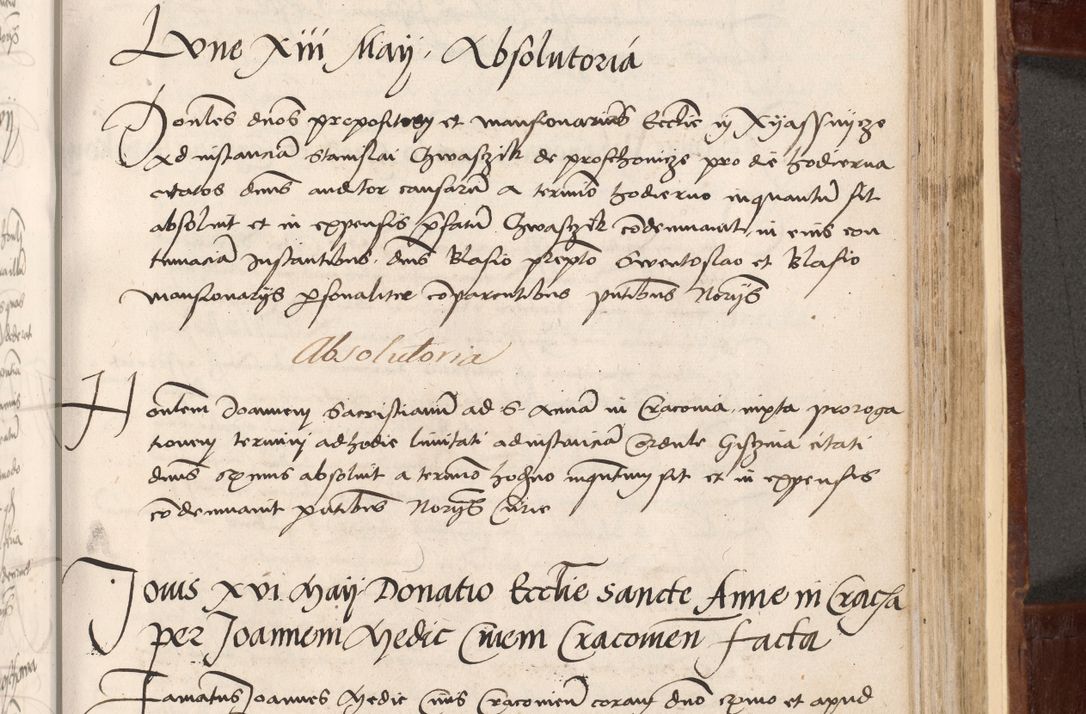 Lune XIII Maij. Absolutoria
Honles dnos prepositum et mansionarios Ecclie in Xyasswijcze
Ad instanciam Stanislai Chwasczik de proschovicze pro die hodierna
citatos dnus auditor causarum a termino hodierno inquantum sit
absolvit et in expensis prefatum Chwasczik condemnavit in eius con
tumaciam Instantibus dnis Blasio preposito Swentoslao et Blasio
mansionarijs personaliter comparentibus pntibus Norijs
Absolutoria
Honlem Joannem Sacristianum ad S. Annam in Cracovia iuxta proroga
cionem termini ad hodie limitati ad instanciam citati
dnus eximius absolvit a termino hodierno inquantum sit et in expensis
condemnavit pntibus Norijs Curie
Jovis XVI Maij Donatio Ecclie Sancte Anne in Craca
per Joannem Medic Civem Cracovien facta
Famatus Joannes Medic Civis Cracovien coram dno eximio et apud